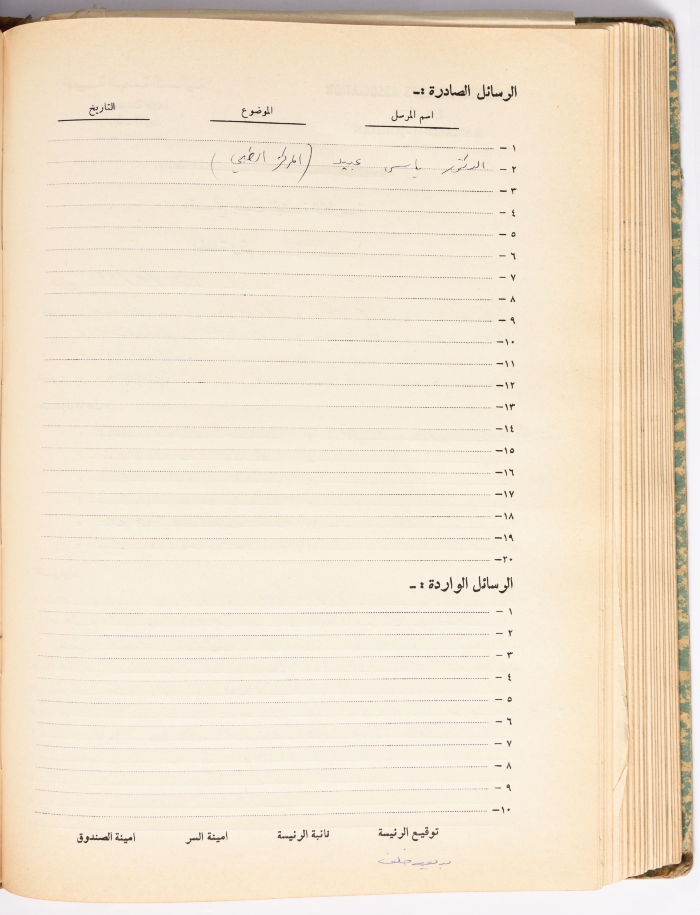 الرسائل الصادرة :-
اسم المرسل الموضوع التاريخ
١ -
٢ - الدكتور ياسر عبيد (المركز الطبي)
٣ -
٤ -
٥ -
٦ -
٧ -
٨ -
٩ -
١٠-
١١-
١٢-
١٣-
١٤-
١٥-
١٦-
١٧-
١٨-
١٩-
٢٠-
الرسائل الواردة :-
١ -
٢ -
٣ -
٤ -
٥ -
٦ -
٧ -
٨ -
٩ -
١٠-
توقيع الرئيسة نائبة الرئيسة امينة السر امينة الصندوق
خلف